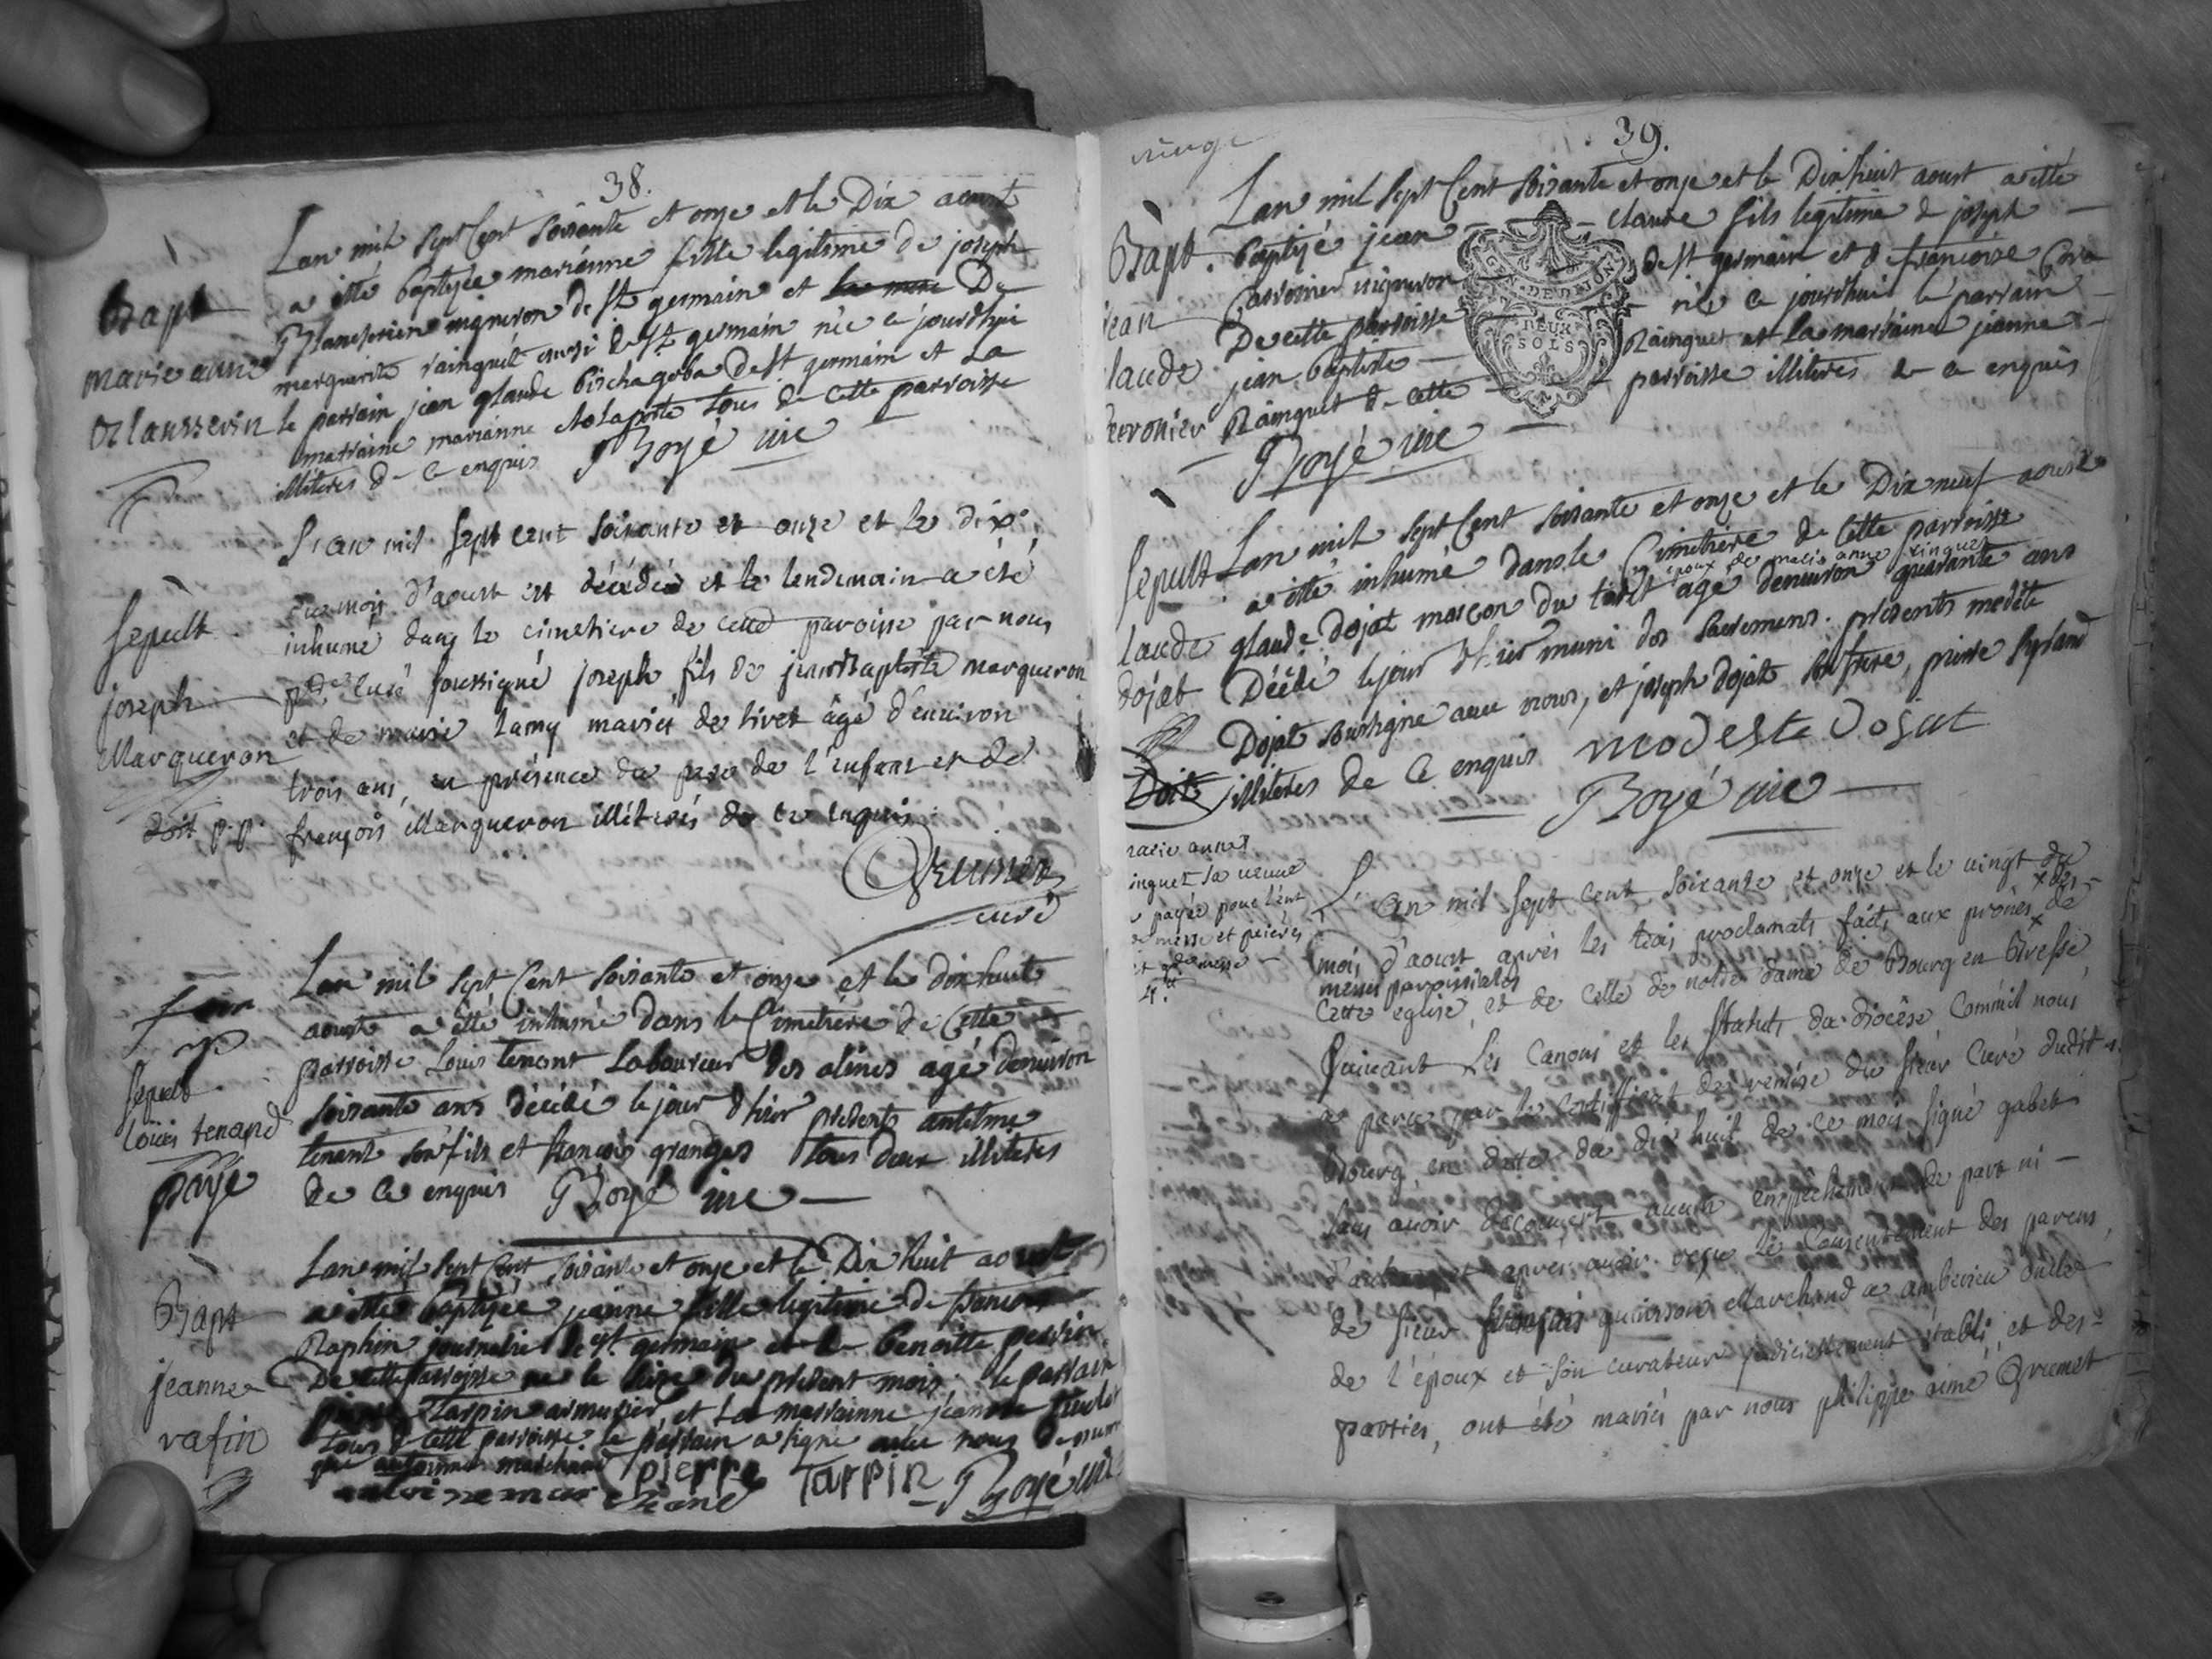 38.
Bapt
marie anne
Blansserin
Lan mil sept Cent soixante et onze et le Dix aoust
a etté baptisée marianne fille legitime de joseph
Blancherin vigneron de st germain et la mere De
marguerite rainguet aussi de st germain née ce jourdhui
le parrain jean glaude de st germain et La
marraine marianne tous de cette parroisse
illiteres de ce enquis Boyé vic
Sepult
joseph
Marqueron
doit p. p.
L'an mil sept cent soixante et onze et le dix
du mois d'aoust est décédé et le lendemain a été
inhumé dans le cimetiere de cette paroisse par nous
pdre curé soussigné joseph fils de jean Baptiste marqueron
et de marie Lamy mariés de tiret âgé d'environ
trois ans, en présence du pere de l'enfant et de
françois Marqueron illétérés de ce enquis
Grumet
curé
Sepult
Loüis tenand
payé
Lan mil sept Cent soixante et onze et le dix huit
aoust a etté inhumé dans le Cimetiere de Cette
parroisse Louis tenant Laboureur des alimes agé denviron
soixante ans décédé le jour d'hier presents antelme
tenant son fils et françois granger tous deux illiteres
de ce enquis Boyé vic
Bapt
jeanne
rafin
Lan mil sept Cent soixante et onze et le Dix huit aoust
a etté baptizée jeanne fille legitime de francois
Raphin journalier de st germain et de benoitte perrin
De cette parroisse née le seize du présent mois le parrain
pierre Tarpin armurier et La marrainne jeanne
tous de cette parroisse le parrain a signé avec nous
marchand
pierre Tarpin Boyé vic
39.
Bapt.
jean
laude
Lan mil sept Cent soixante et onze et le Dix huit aoust a etté
baptizé jean claude fils legitime de joseph
vigneron de st germain et de francoise
De cette parroisse né ce jourdhui le parrain
jean baptiste Rainguet et la marraine jeanne
Rainguet de cette parroisse illiteres de ce enquis
Boyé vic
GEN. DE DIJON
DEUX
SOLS
Sepult
laude
dojat
Doit
Lan mil sept Cent soixante et onze et le Dix neuf aoust
a etté inhumé dans le Cimetiere de Cette parroisse
époux de marie anne ringuet
glaude Dojat maçon du tiret agé denviron quarante ans
Décédé le jour d'hier muni des sacremens. présents modeste
Dojat soussigné avec nous, et joseph dojat son frere, pierre
illiteres de ce enquis modeste Dojat
Boyé vic
marie anne
inguet sa veuve
payée pour
messe et prieres
et gde messe
L'an mil sept cent soixante et onze et le vingt du
mois d'aoust après les trois proclamats faits aux prônes des
messes paroissiales de
Cette eglise, et de celle de notre dame de Bourg en Bresse
suivant Les Canons et les statuts du diocèse, comme il nous
a paru par le certifficat de remise du sieur curé dudit
Bourg, en datte du dix huit de ce mois signé gabet
sans avoir découvert aucun empêchement de part ni
d'autre et après avoir reçu le consentement des parens,
de sieur françois Marchand a amberieu oncle
de l'époux et son curateur judiciairement établi, et des
parties, ont été mariés par nous philippe aimé Grumet